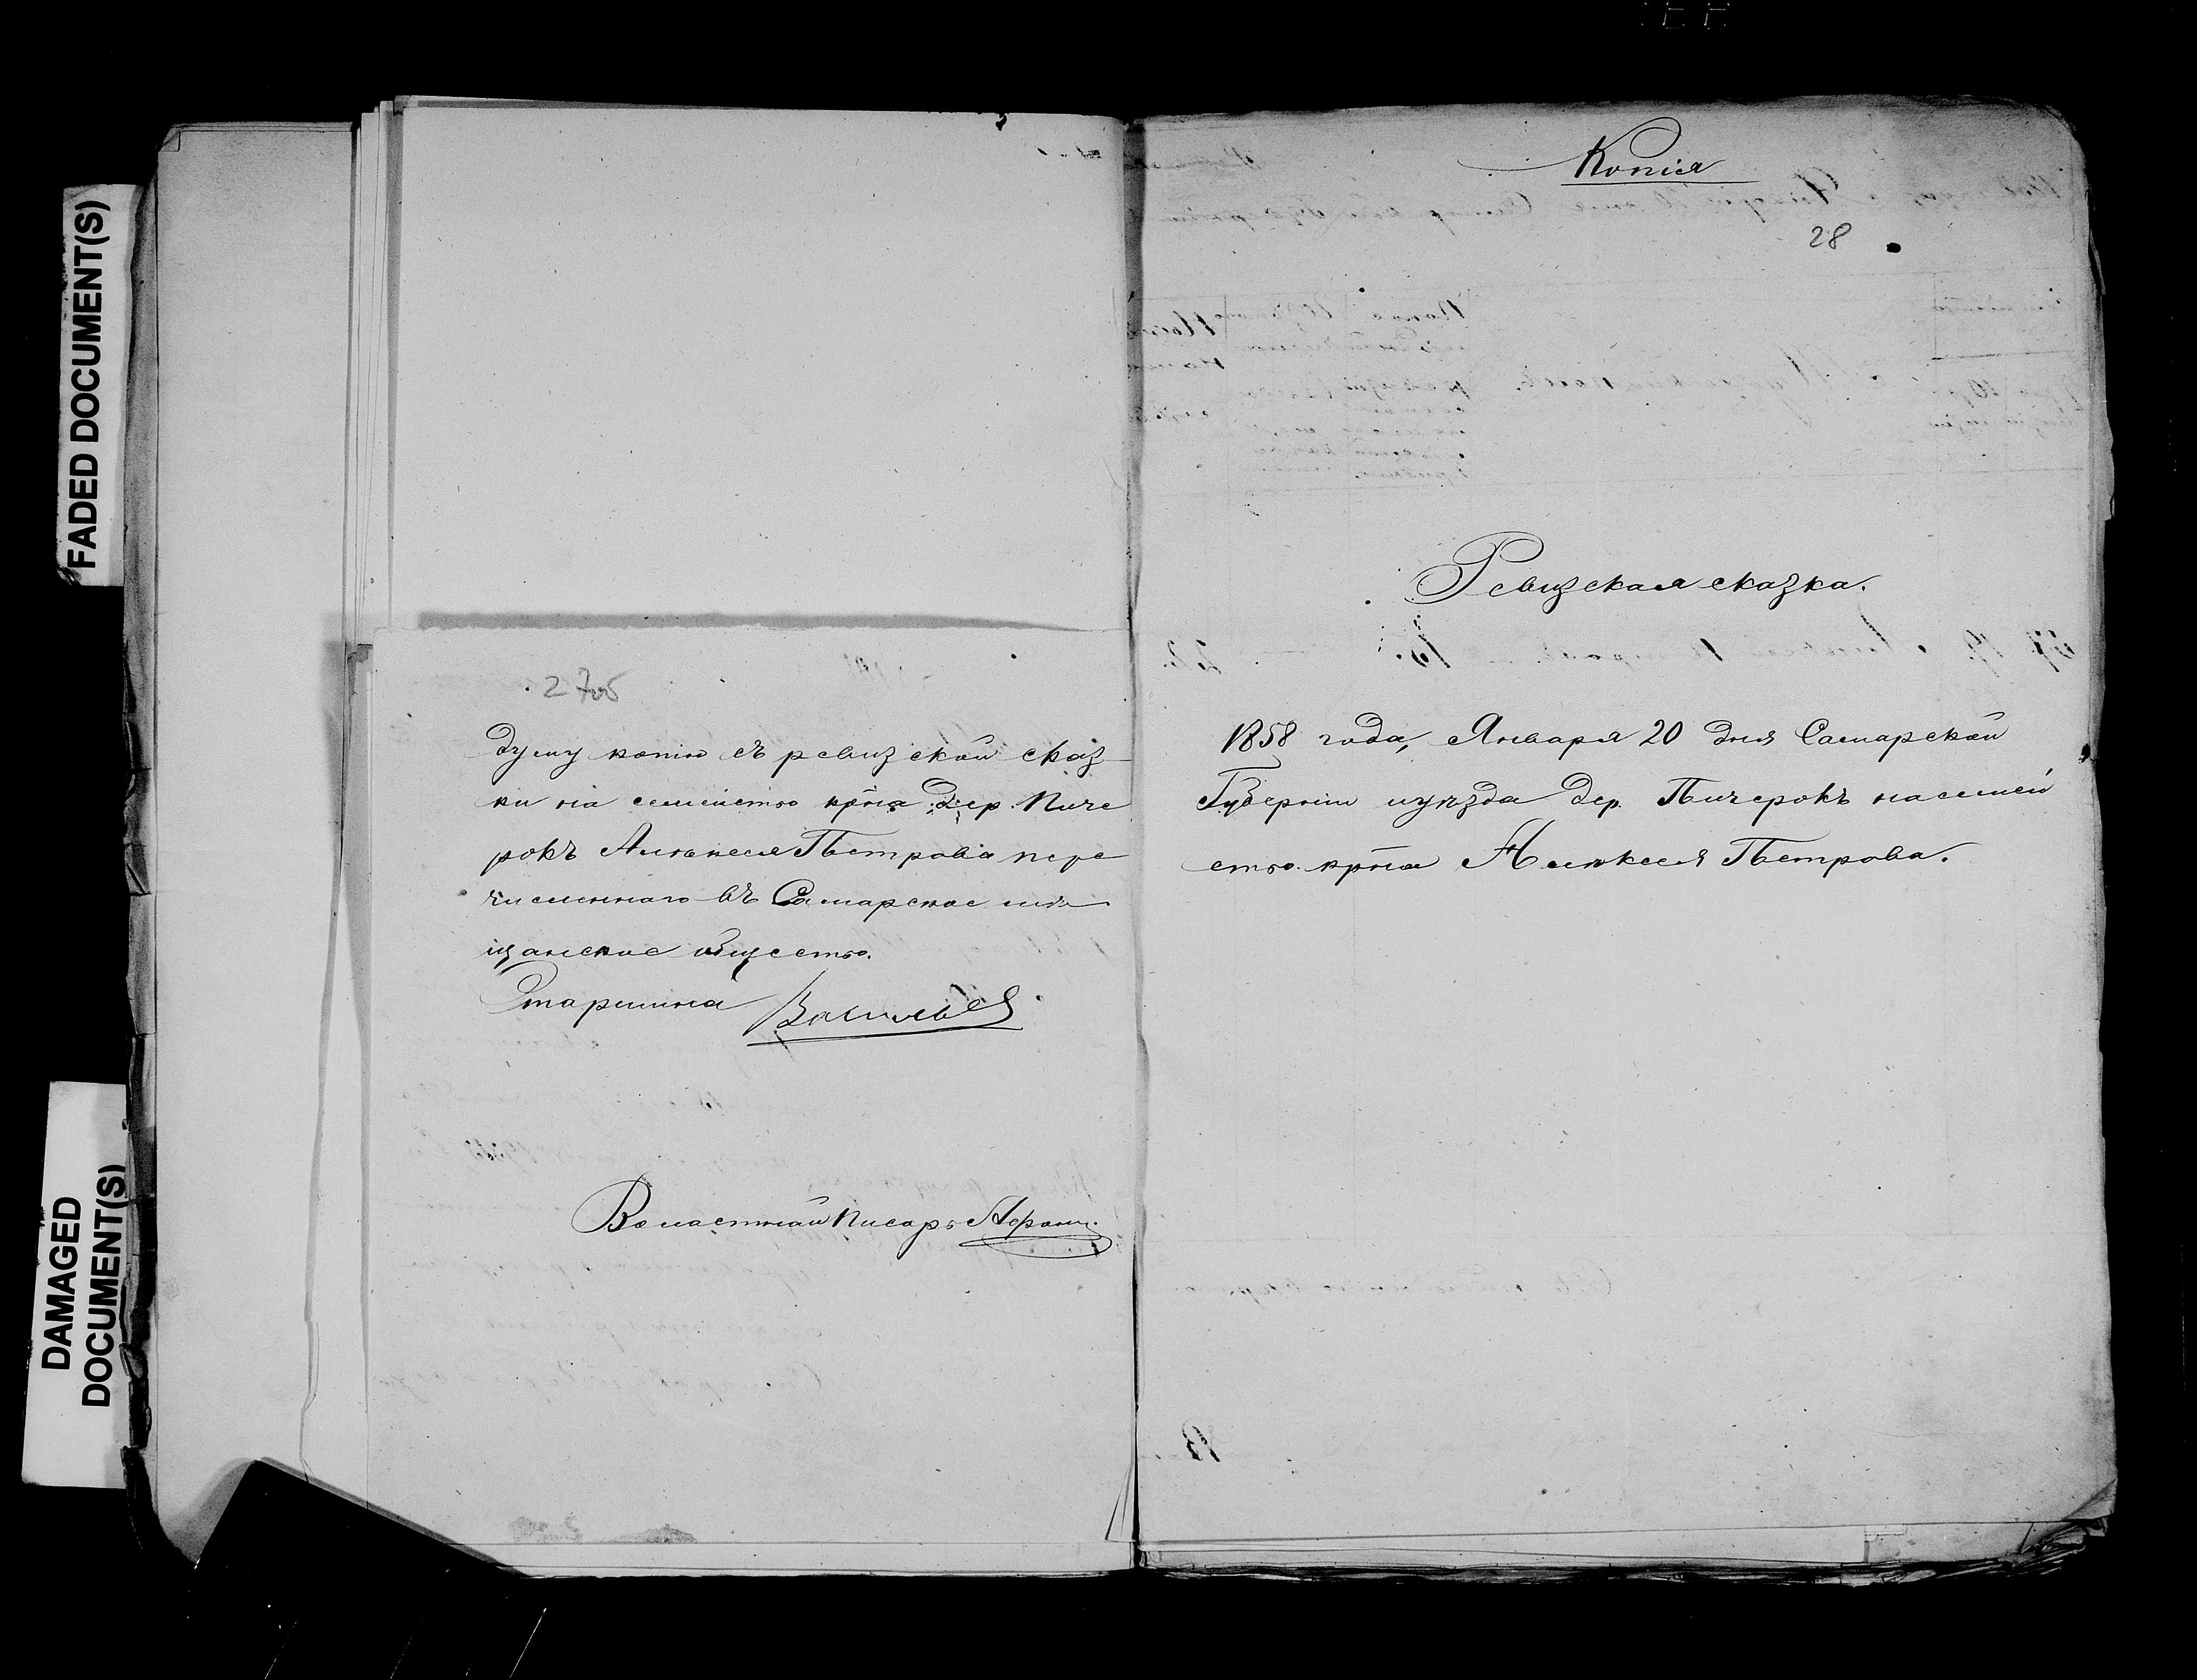 FADED DOCUMENT(S)
DAMAGED
DOCUMENT(S)
27об
думу копію съ ревизской сказ-
ки на семейство крна дер. Пиче
рокъ Алексея Петрова пере
численнаго въ Самарское мѣ
щанское общество.
Старшина Васильев
Волостной писарь
Копія
28
Ревизская сказка.
1858 года, Января 20 дня Самарской
Губерніи и уѣзда дер. Пичерокъ на семей
ство крна Алексея Петрова.